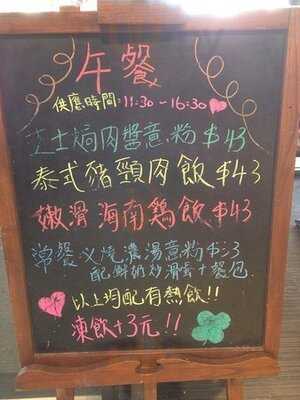 午餐
供應時間:11:30-16:30
芝士焗肉醬意粉$43
泰式豬頸肉飯$43
嫩滑海南鶏飯$43
常餐 叉燒濃湯意粉$33
配鮮奶炒滑蛋+餐包
以上均配有熱飲!!
凍飲+3元!!